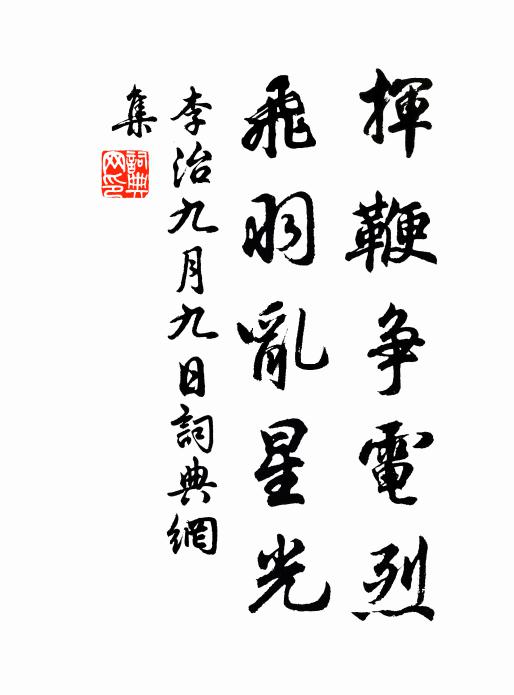 揮鞭争電烈
飛羽亂星光
李治九月九日詞典網
集
詞典
网印